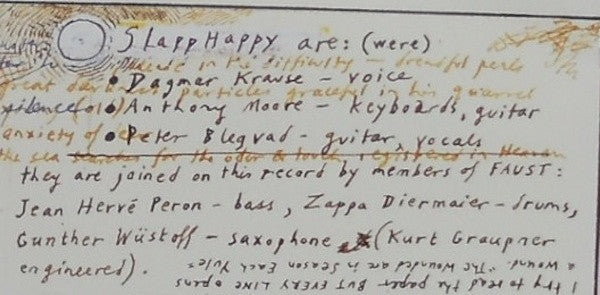 SlappHappy are: (were)
in the difficulty — dreadful
• Dagmar Krause – voice
great particles graceful in his quarrel
silence (old)
• Anthony Moore – keyboards, guitar
anxiety of
• Peter Blegvad – guitar, vocals
the sea searches for the odor & touch registered in Heaven
they are joined on this record by members of FAUST:
Jean Hervé Peron – bass, Zappa Diermaier – drums,
Gunther Wüstoff – saxophone (Kurt Graupner
engineered).
I try to read the paper BUT EVERY LINE opens
a wound. "The Wounded are in Season Each Yule"